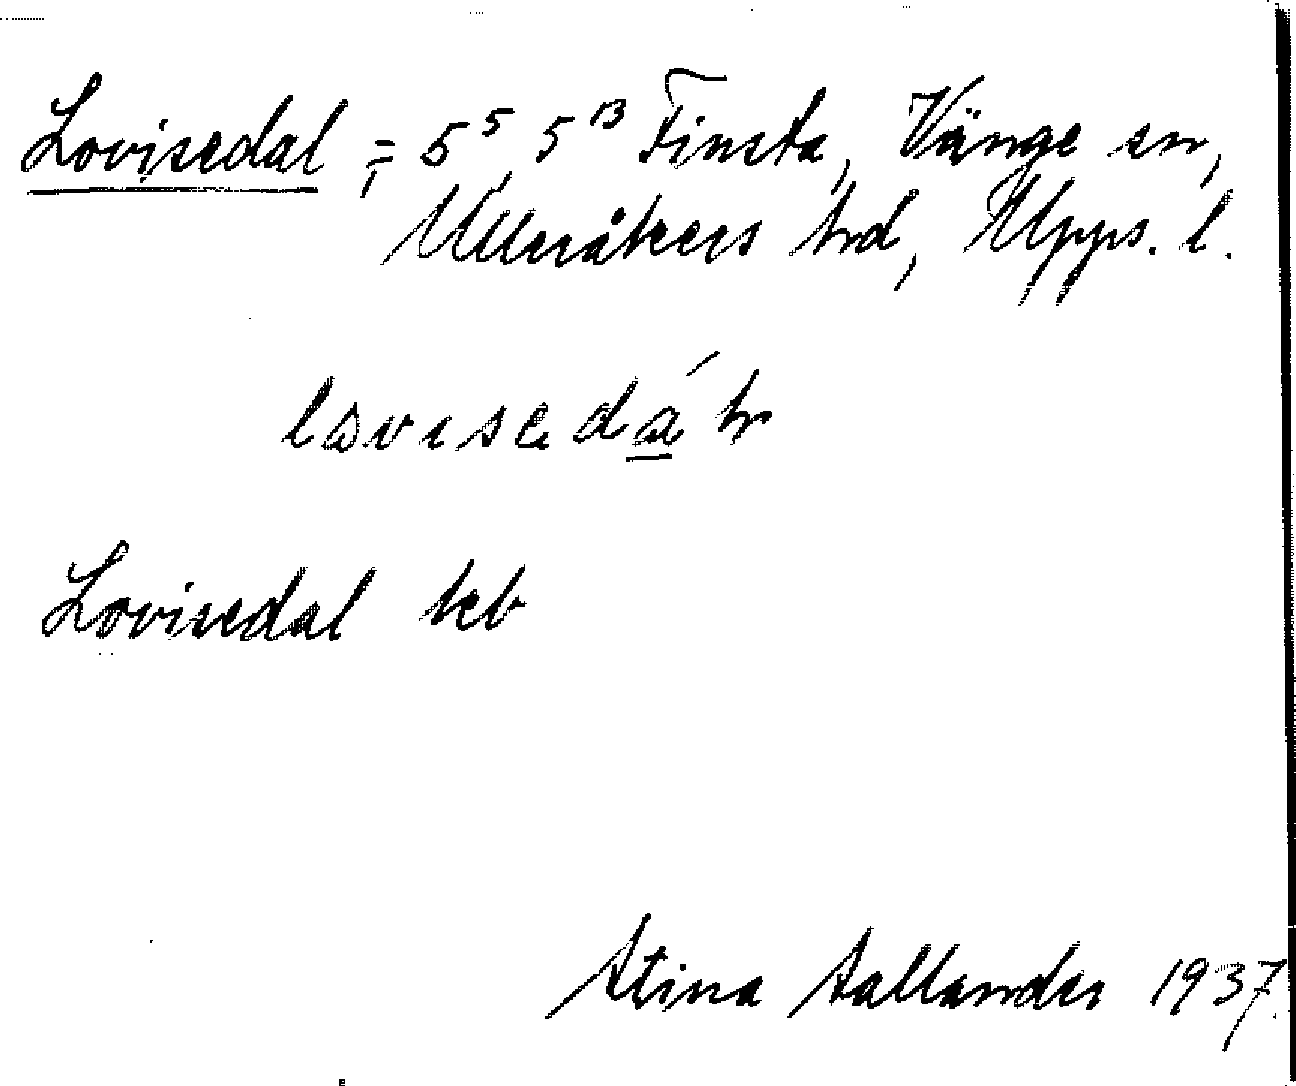 Lovisedal, = 5⁵, 5¹³ Finsta, Vänge sn,
Ulleråkers hd, Upps. l.
Lovisedal kb
Stina Sallander 1937.